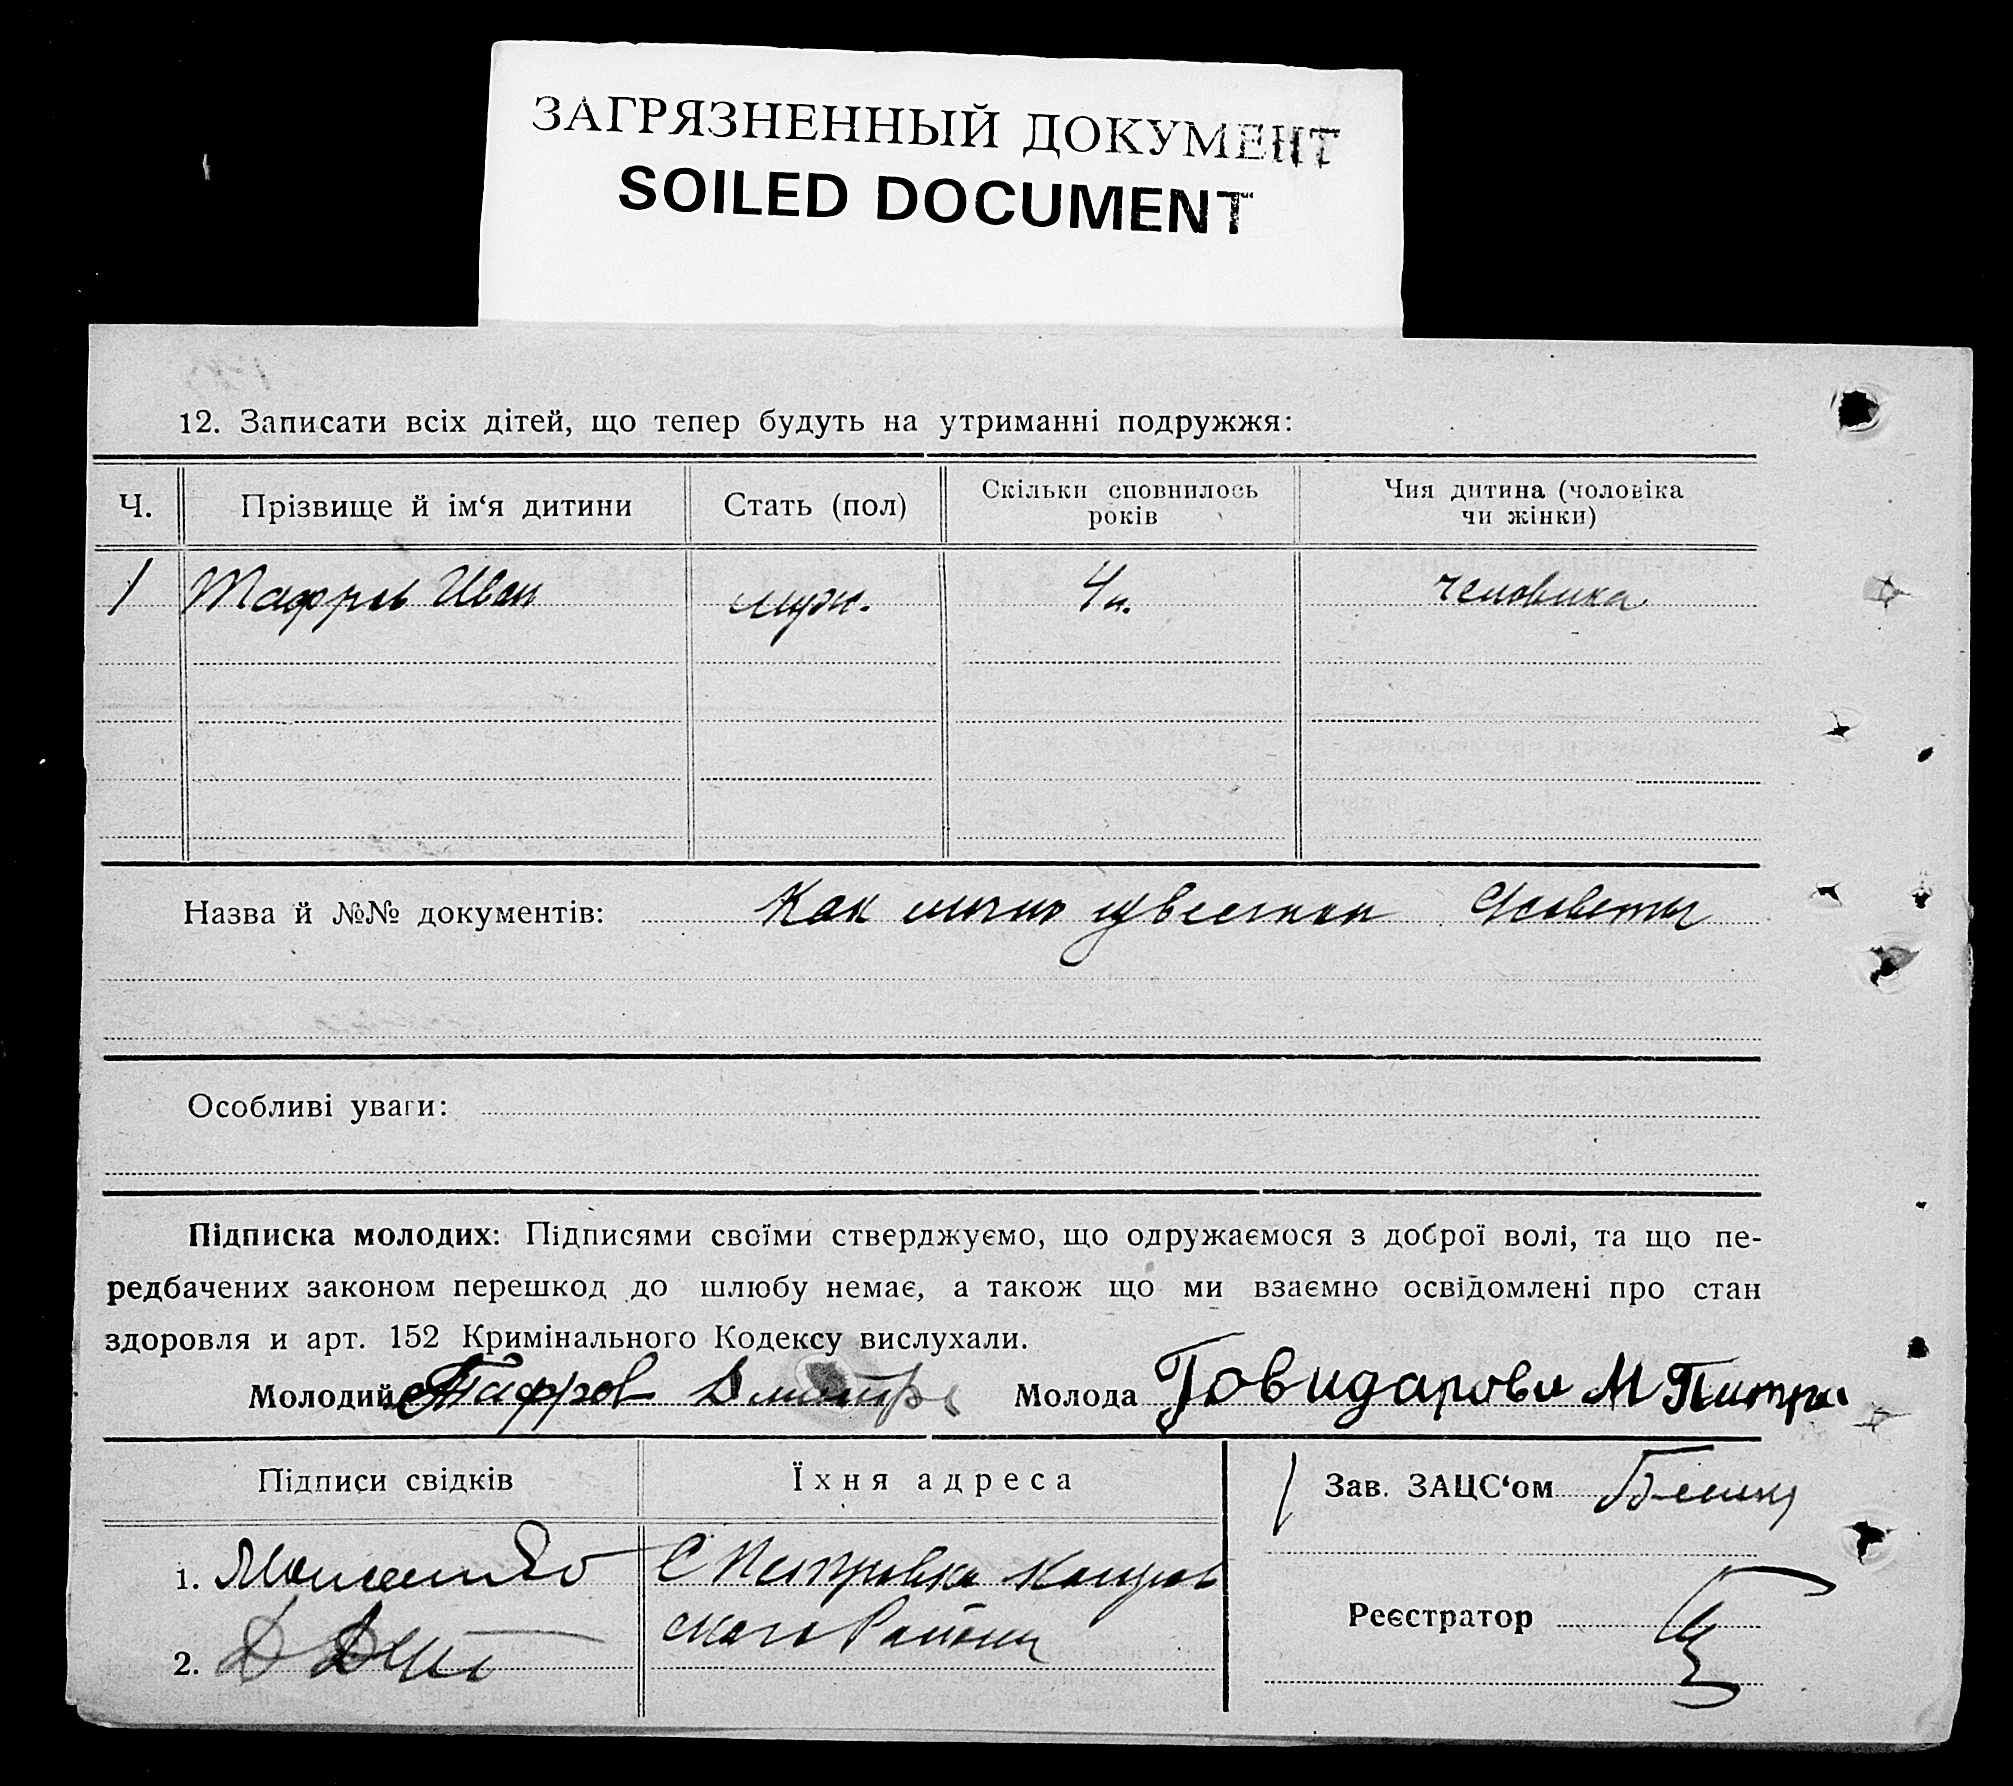 ЗАГРЯЗНЕННЫЙ ДОКУМЕНТ
SOILED DOCUMENT
12. Записати всіх дітей, що тепер будуть на утриманні подружжя:
Ч. Прізвище й ім‘я дитини Стать (пол) Скільки сповнилось років Чия дитина (чоловіка чи жінки)
1 Тафров Иван муж. 4 человика
Назва й №№ документів: Как лично
Особливі уваги:
Підписка молодих: Підписями своїми стверджуємо, що одружаємося з доброї волі, та що пе-
редбачених законом перешкод до шлюбу немає, а також що ми взаємно освідомлені про стан
здоровля и арт. 152 Кримінального Кодексу вислухали.
Молодий Тафров Дмитр Молода М
Підписи свідків Їхня адреса Зав. ЗАЦС‘ом
1. С Петровка
2. Района Реєстратор